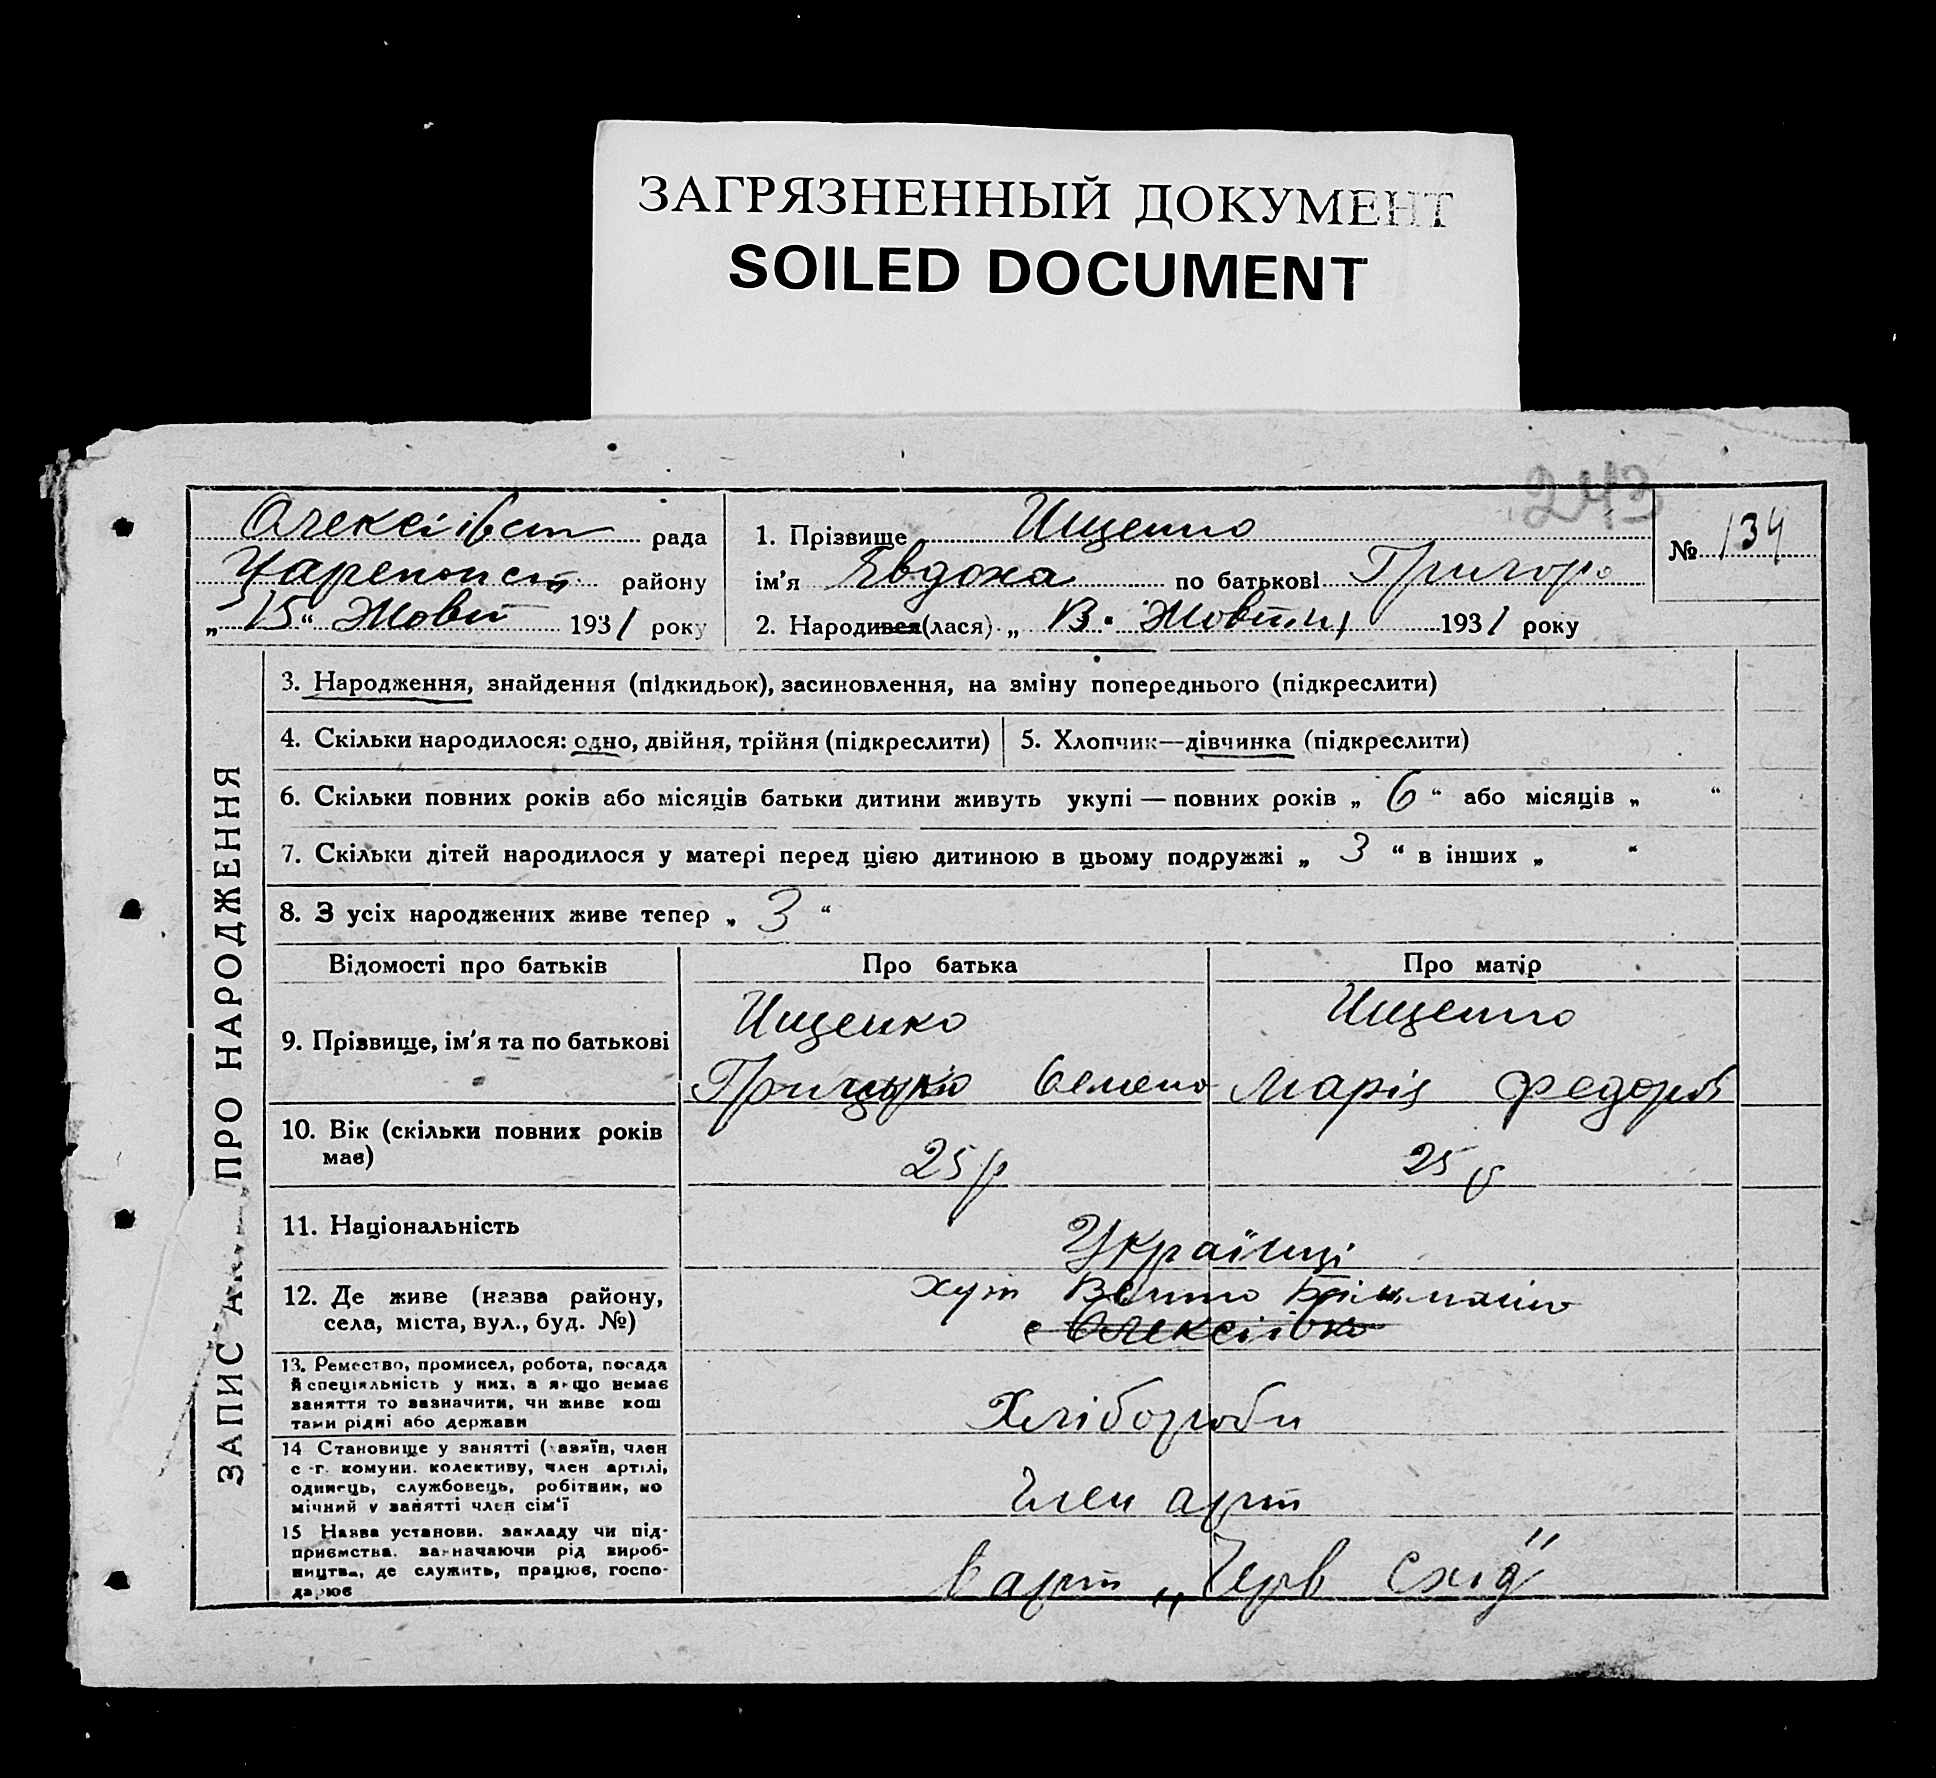 ЗАГРЯЗНЕННЫЙ ДОКУМЕНТ
SOILED DOCUMENT
243
Олексіївст рада
району
„15“ Жовт 1931 року
1. Прізвище Ищенко
ім'я Явдоха по батькові Григоро
2. Народився(лася) „13“ Жовтня 1931 року
№ 134
ЗАПИС АК ПРО НАРОДЖЕННЯ
3. Народження, знайдення (підкидьок), засиновлення, на зміну попереднього (підкреслити)
4. Скільки народилося: одно, двійня, трійня (підкреслити)
5. Хлопчик—дівчинка (підкреслити)
6. Скільки повних років або місяців батьки дитини живуть укупі — повних років „6“ або місяців „ “
7. Скільки дітей народилося у матері перед цією дитиною в цьому подружжі „3“ в інших „ “
8. З усіх народжених живе тепер „3“
Відомості про батьків
Про батька
Про матір
9. Прізвище, ім'я та по батькові
Ищенко
Семено
Ищенко
Марія Федоров
10. Вік (скільки повних років
має)
25 р
25 р
11. Національність
Українці
12. Де живе (назва району,
села, міста, вул., буд. №)
хут
с Олексіівка
13. Ремество, промисел, робота, посада
й спеціяльність у них, а якщо немає
заняття то зазначити, чи живе кош
тами рідні або держави
Хлібороби
14 Становище у занятті (хазяїн, член
с-г. комуни. колективу, член артілі,
одинець, службовець, робітник, по
мічний у занятті член сім'ї
Член арт
15 Назва установи. закладу чи під-
приємства. зазначаючи рід вироб-
ництва, де служить, працює, госпо-
дарює
В арт „Черв Схід“